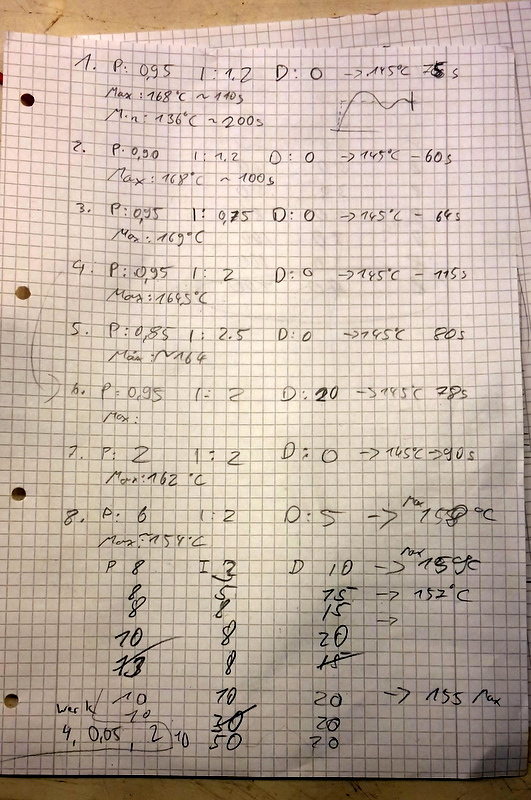 1. P: 0,95 I: 1.2 D: 0 → 145°C 75 s
Max: 168°C ~ 110s
Min: 136°C ~ 200s
2. P: 0,90 I: 1,2 D: 0 → 145°C - 60s
Max: 168°C ~ 100s
3. P: 0,95 I: 0,75 D: 0 → 145°C - 64s
Max: 169°C
4. P: 0,95 I: 2 D: 0 → 145°C - 115s
Max: 164,5°C
5. P: 0,85 I: 2.5 D: 0 → 145°C 80s
Max: ~164
6. P: 0,95 I: 2 D: 20 → 145°C 78s
Max:
7. P: 2 I: 2 D: 0 → 145°C → 90s
Max: 162°C
8. P: 6 I: 2 D: 5 → Max °C
Max: ~154°C
P 8 I 3 D 10 → Max
8 5 15 → 157°C
8 8 15 →
10 8 20
13 8 15
10 10 20 → 155 Max
Werk 10 30 20
4, 0,05, 2 10 50 20